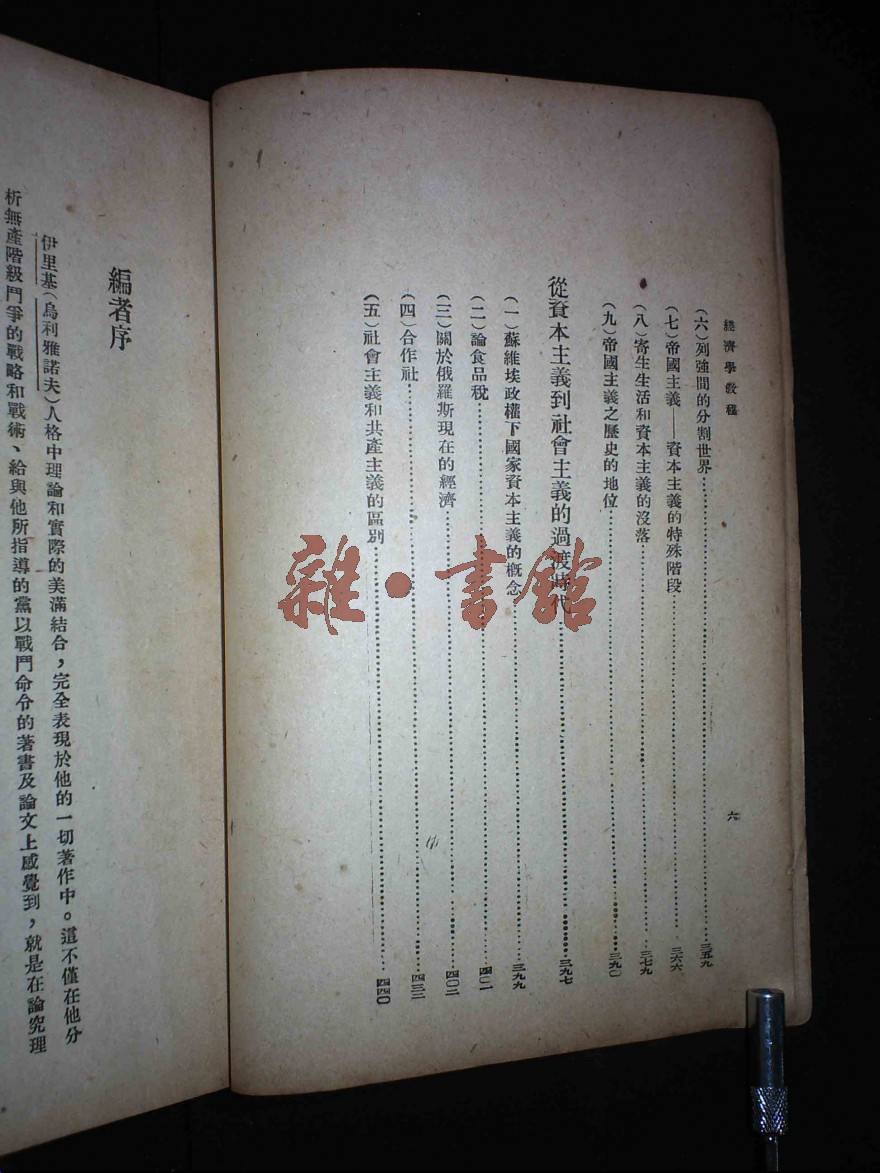 經濟學教程
六
(六)列強間的分割世界……三五九
(七)帝國主義——資本主義的特殊階段……三六六
(八)寄生生活和資本主義的沒落……三七九
(九)帝國主義之歷史的地位……三九〇
從資本主義到社會主義的過渡時代……三九七
(一)蘇維埃政權下國家資本主義的概念……三九九
(二)論食品稅……四〇一
(三)關於俄羅斯現在的經濟……四〇三
(四)合作社……四三二
(五)社會主義和共產主義的區別……四四〇
編者序
伊里基(烏利雅諾夫)人格中理論和實際的美滿結合,完全表現於他的一切著作中。這不僅在他分
析無產階級鬥爭的戰略和戰術、給與他所指導的黨以戰鬥命令的著書及論文上感覺到,就是在論究理
雜·書館